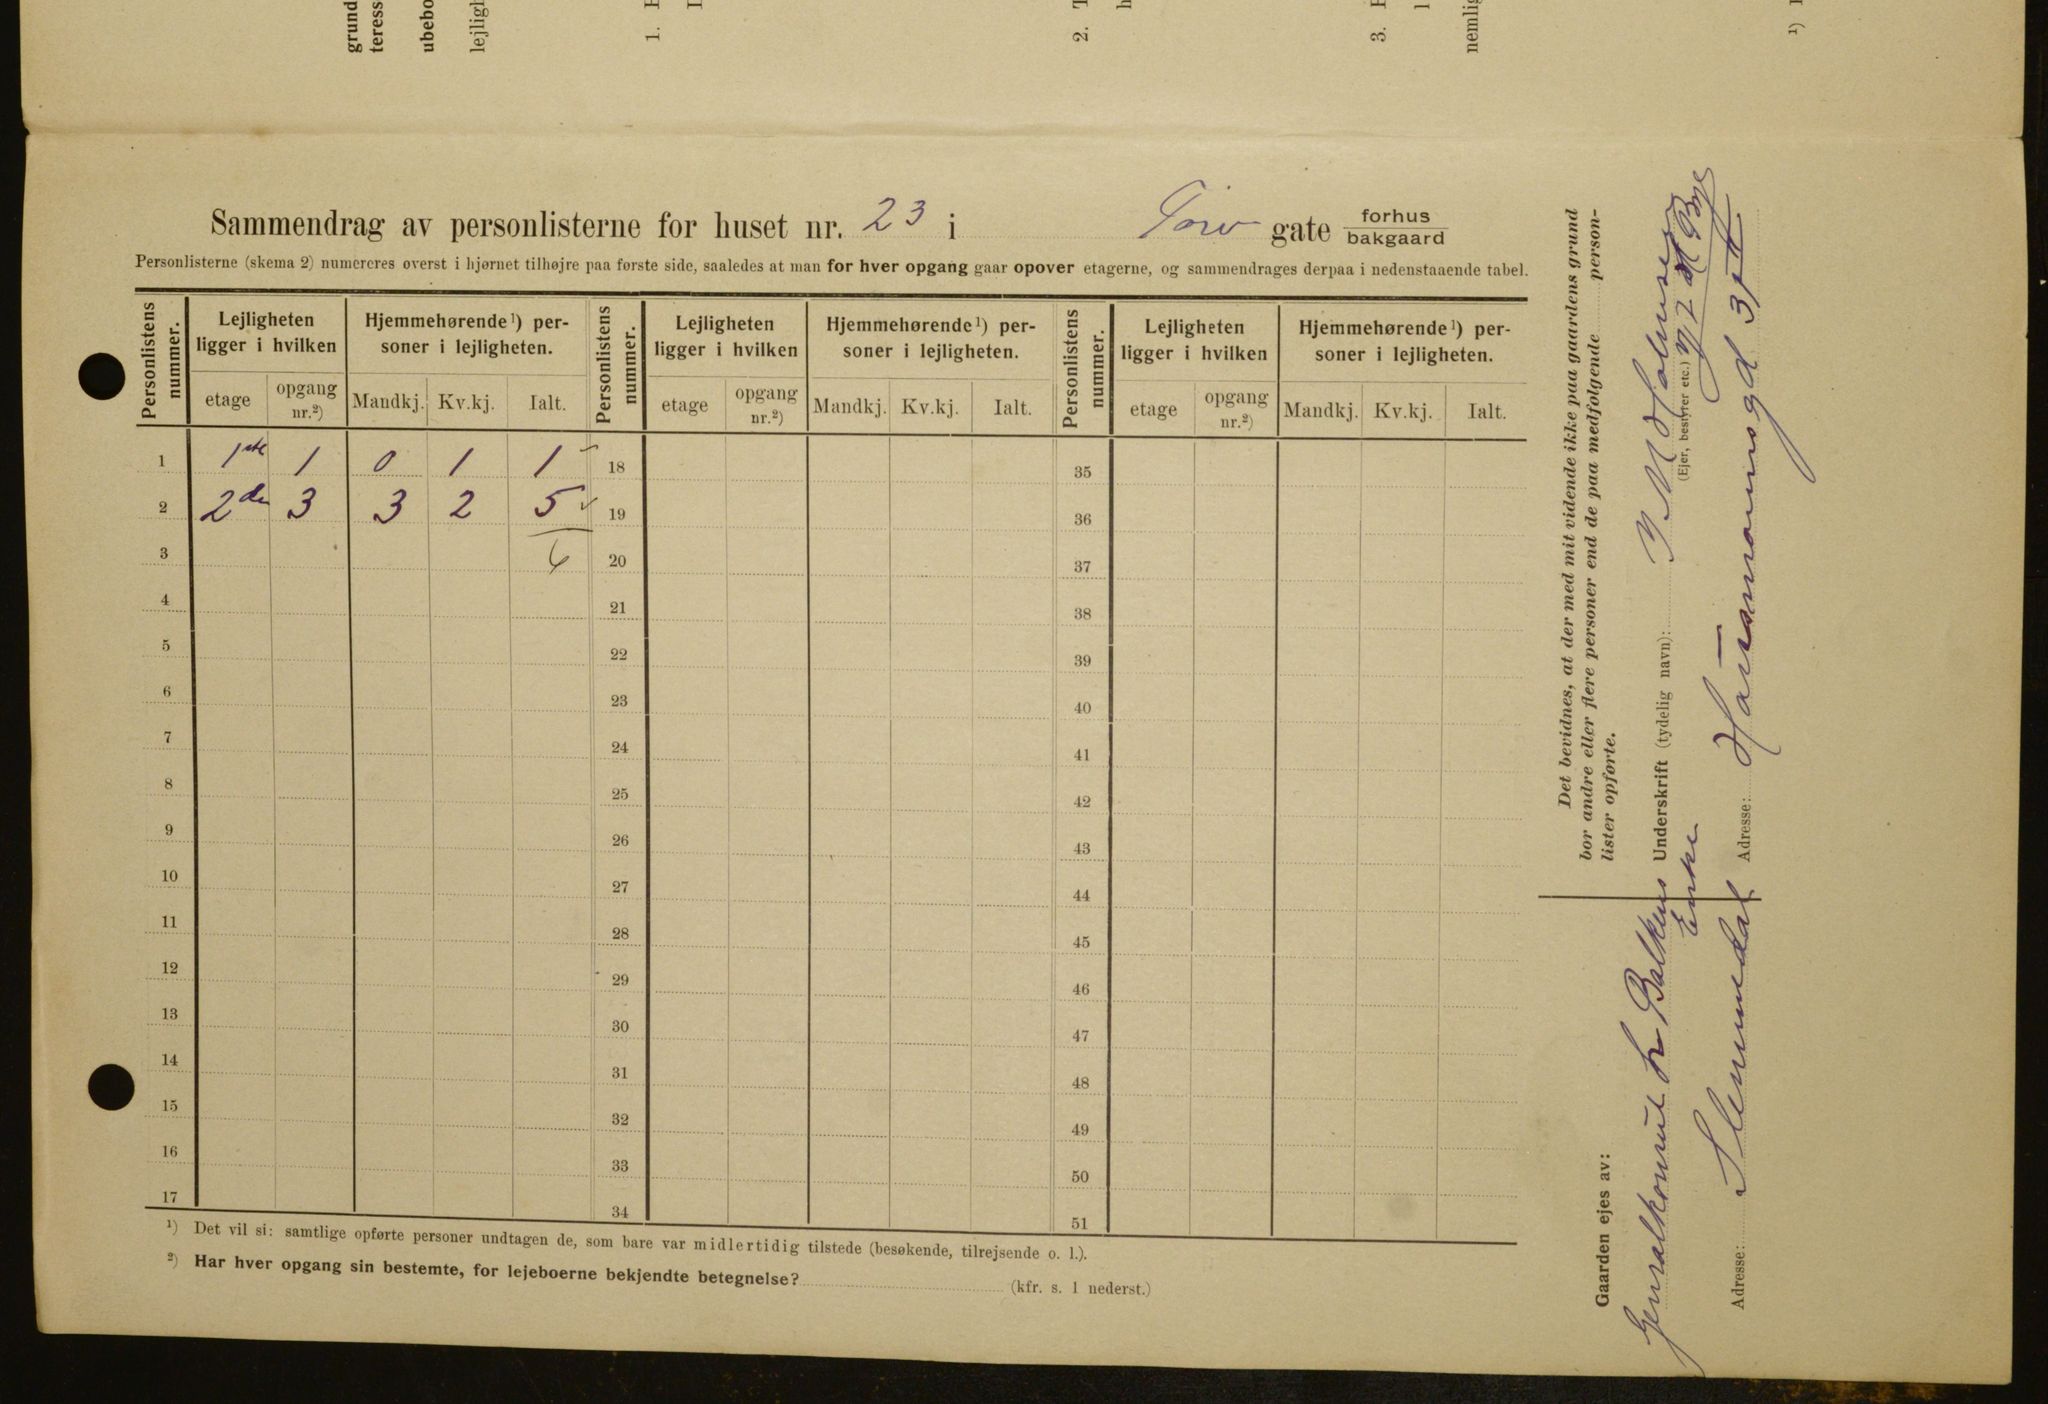 grund
teress
ubebo
lejligh
1.
2.
3.
nemlig
¹)
Sammendrag av personlisterne for huset nr. 23 i Torv gate forhus
bakgaard
Personlisterne (skema 2) numereres øverst i hjørnet tilhøjre paa første side, saaledes at man for hver opgang gaar opover etagerne, og sammendrages derpaa i nedenstaaende tabel.
Personlistens nummer. Lejligheten ligger i hvilken Hjemmehørende¹) personer i lejligheten. Personlistens nummer. Lejligheten ligger i hvilken Hjemmehørende¹) personer i lejligheten. Personlistens nummer. Lejligheten ligger i hvilken Hjemmehørende¹) personer i lejligheten.
etage opgang nr.²) Mandkj. Kv.kj. Ialt. etage opgang nr.²) Mandkj. Kv.kj. Ialt. etage opgang nr.²) Mandkj. Kv.kj. Ialt.
1 1ste 1 0 1 1 18 35
2 2den 3 3 2 5 19 36
3 6 20 37
4 21 38
5 22 39
6 23 40
7 24 41
8 25 42
9 26 43
10 27 44
11 28 45
12 29 46
13 30 47
14 31 48
15 32 49
16 33 50
17 34 51
¹) Det vil si: samtlige opførte personer undtagen de, som bare var midlertidig tilstede (besøkende, tilrejsende o. l.).
²) Har hver opgang sin bestemte, for lejeboerne bekjendte betegnelse? (kfr. s. 1 nederst.)
Det bevidnes, at der med mit vidende ikke paa gaardens grund
bor andre eller flere personer end de paa medfølgende personlister opførte.
Underskrift (tydelig navn):
(Ejer, bestyrer etc.)
Adresse: Hausmannsgd
Gaarden ejes av:
Balkens
Enke
Adresse: Slemmedal